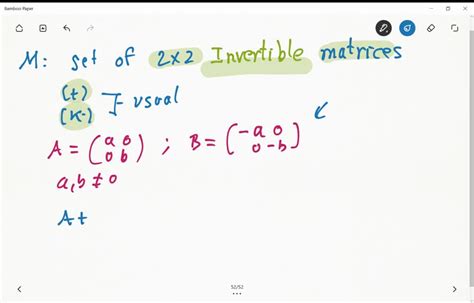 Bamboo Paper
M: set of 2x2 Invertible matrices
(+)
(x·) } usual
A = (a 0
0 b) ; B = (-a 0
0 -b)
a, b ≠ 0
A+
52/52